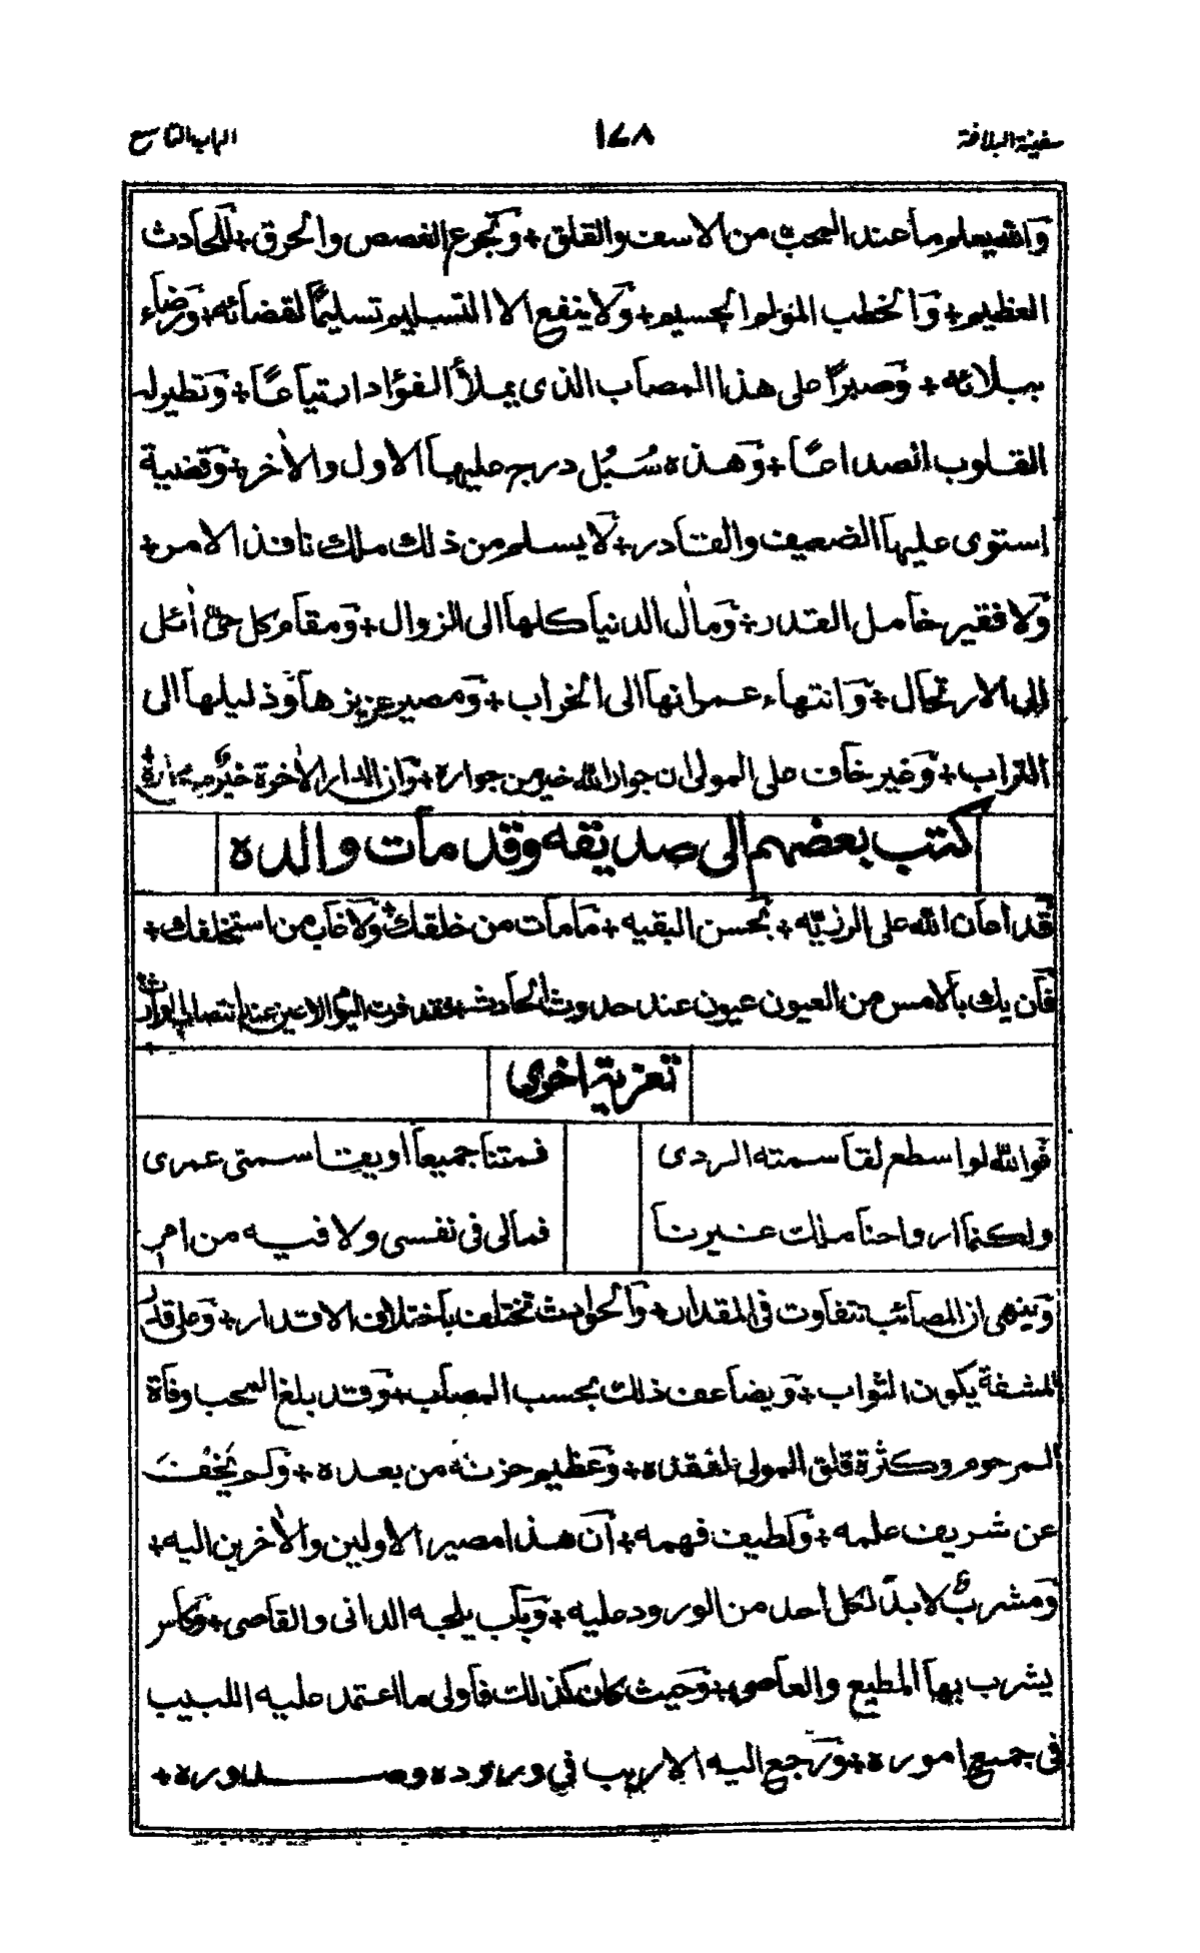 سفينة البلاغة ١٤٨ الباب التاسع
وَالله يعلم ما عند المحب من الاسف والقلق + وَتجرع الغصص والحرق + للحادث
العظيم + وَالخطب المؤلم الجسيم + وَلا ينفع الا التسليم تسليمًا لقضائه + وَرضاء
ببلائه + وَصبرًا على هذا المصاب الذى يملأ الفؤاد ارتياعًا + وَتطير له
القلوب انصداعًا + وَهذه سُبُل درج عليها الاول والاٰخر + وَقضية
استوى عليها الضعيف والقادر + لَا يسلم من ذلك ملك نافذ الامر +
وَلا فقير خامل القدر + وَماٰل الدنيا كلها الى الزوال + وَمقام كل حىٍّ اٰئل
الى الارتحال + وَانتهاء عمرانها الى الخراب + وَمصير عزيزها وَذليلها الى
التراب + وَغير خاف على المولى ان جوار الله خير من جواره + وَان الدار الاٰخرة خيرٌ من داره +
كتب بعضهم الى صديقه وقد مات والده
قَد اعان الله على الرزيّه + بحسن البقيه + مَا مات من خلفك + وَلا خاب من استخلفك +
فَان يك بالامس من العيون عيون عند حدوث الحادث + فقد قرت اليوم الاعين عند انتصاب الوارث +
تعزية اخرى
فوالله لو اسطع لقاسمته الردى فمتنا جميعا او يقاسمنى عمرى
ولكنما ارواحنا ملك غيرنا فمالى فى نفسى ولا فيه من امر
وَينهى ان المصائب تتفاوت فى المقدار + وَالحوادث تختلف باختلاف الاقدار + وَعلى قدر
المشقة يكون الثواب + وَيضاعف ذلك بحسب المصاب + وَقد بلغ المحب وفاة
المرحوم وكثرة قلق المولى لفقده + وَعظيم حزنه من بعده + وَلم يَخْفَ
عن شريف علمه + وَلطيف فهمه + اَن هذا مصير الاولين والاٰخرين اليه +
وَمشربٌ لابدّ لكل احد من الورود عليه + وَباب يلجه الدانى والقاصى + وَكاس
يشرب بها المطيع والعاصى + وَحيث كان كذلك فاولى ما اعتمد عليه اللبيب
فى جميع اموره + وَرجع اليه الاريب فى وروده وصدوره +